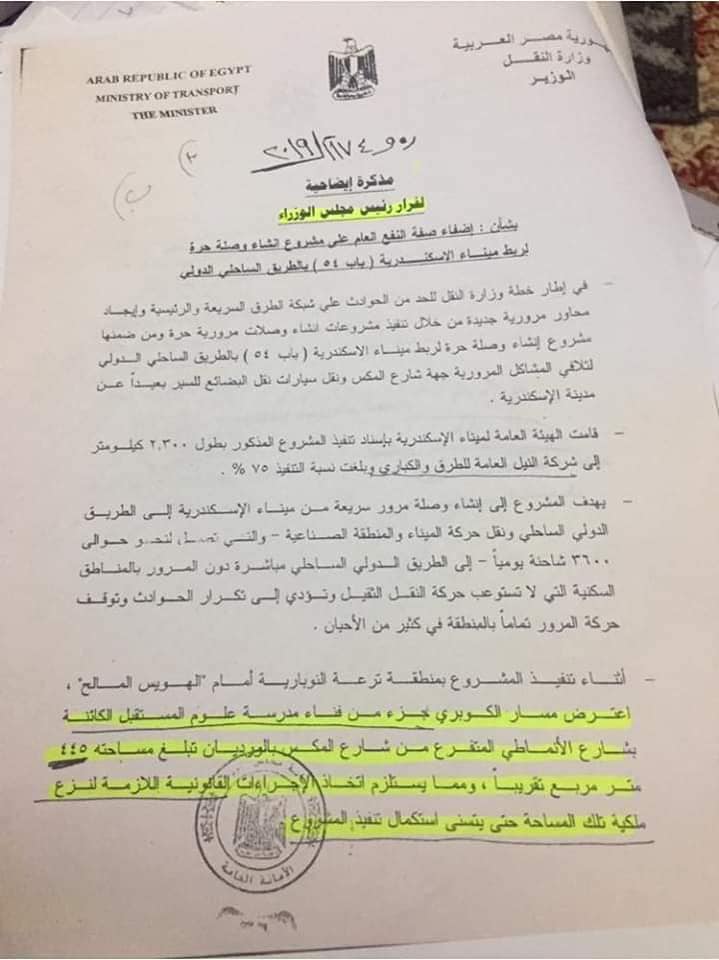 ARAB REPUBLIC OF EGYPT
MINISTRY OF TRANSPORT
THE MINISTER
جمهورية مصر العربية
وزارة النقل
الوزير
مذكرة إيضاحية
لقرار رئيس مجلس الوزراء
بشأن : إضفاء صفة النفع العام على مشروع انشاء وصلة حرة
لربط ميناء الاسكندرية ( باب ٥٤ ) بالطريق الساحلي الدولي
– في إطار خطة وزارة النقل للحد من الحوادث علي شبكة الطرق السريعة والرئيسية وإيجاد
محاور مرورية جديدة من خلال تنفيذ مشروعات انشاء وصلات مرورية حرة ومن ضمنها
مشروع إنشاء وصلة حرة لربط ميناء الاسكندرية ( باب ٥٤ ) بالطريق الساحلي الدولي
لتلافي المشاكل المرورية جهة شارع المكس ونقل سيارات نقل البضائع للسير بعيداً عن
مدينة الإسكندرية .
– قامت الهيئة العامة لميناء الإسكندرية بإسناد تنفيذ المشروع المذكور بطول ٢,٣٠٠ كيلومتر
إلى شركة النيل العامة للطرق والكباري وبلغت نسبة التنفيذ ٧٥ % .
– يهدف المشروع إلى إنشاء وصلة مرور سريعة من ميناء الإسكندرية إلى الطريق
الدولي الساحلي ونقل حركة الميناء والمنطقة الصناعية – والتي حوالى
٣٦٠٠ شاحنة يومياً – إلى الطريق الدولي الساحلي مباشرة دون المرور بالمناطق
السكنية التي لا تستوعب حركة النقل الثقيل وتؤدي إلى تكرار الحوادث وتوقف
حركة المرور تماماً بالمنطقة في كثير من الأحيان .
– أثناء تنفيذ المشروع بمنطقة ترعة النوبارية أمام "الهويس المالح" ،
اعترض مسار الكوبري جزء من فناء مدرسة علوم المستقبل الكائنة
بشارع الأنماطي المتفرع من شارع المكس بالورديان تبلغ مساحته ٤٤٥
متر مربع تقريباً ، ومما يستلزم اتخاذ الإجراءات القانونية اللازمة لنزع
ملكية تلك المساحة حتى يتسنى استكمال تنفيذ المشروع
الأمانة العامة